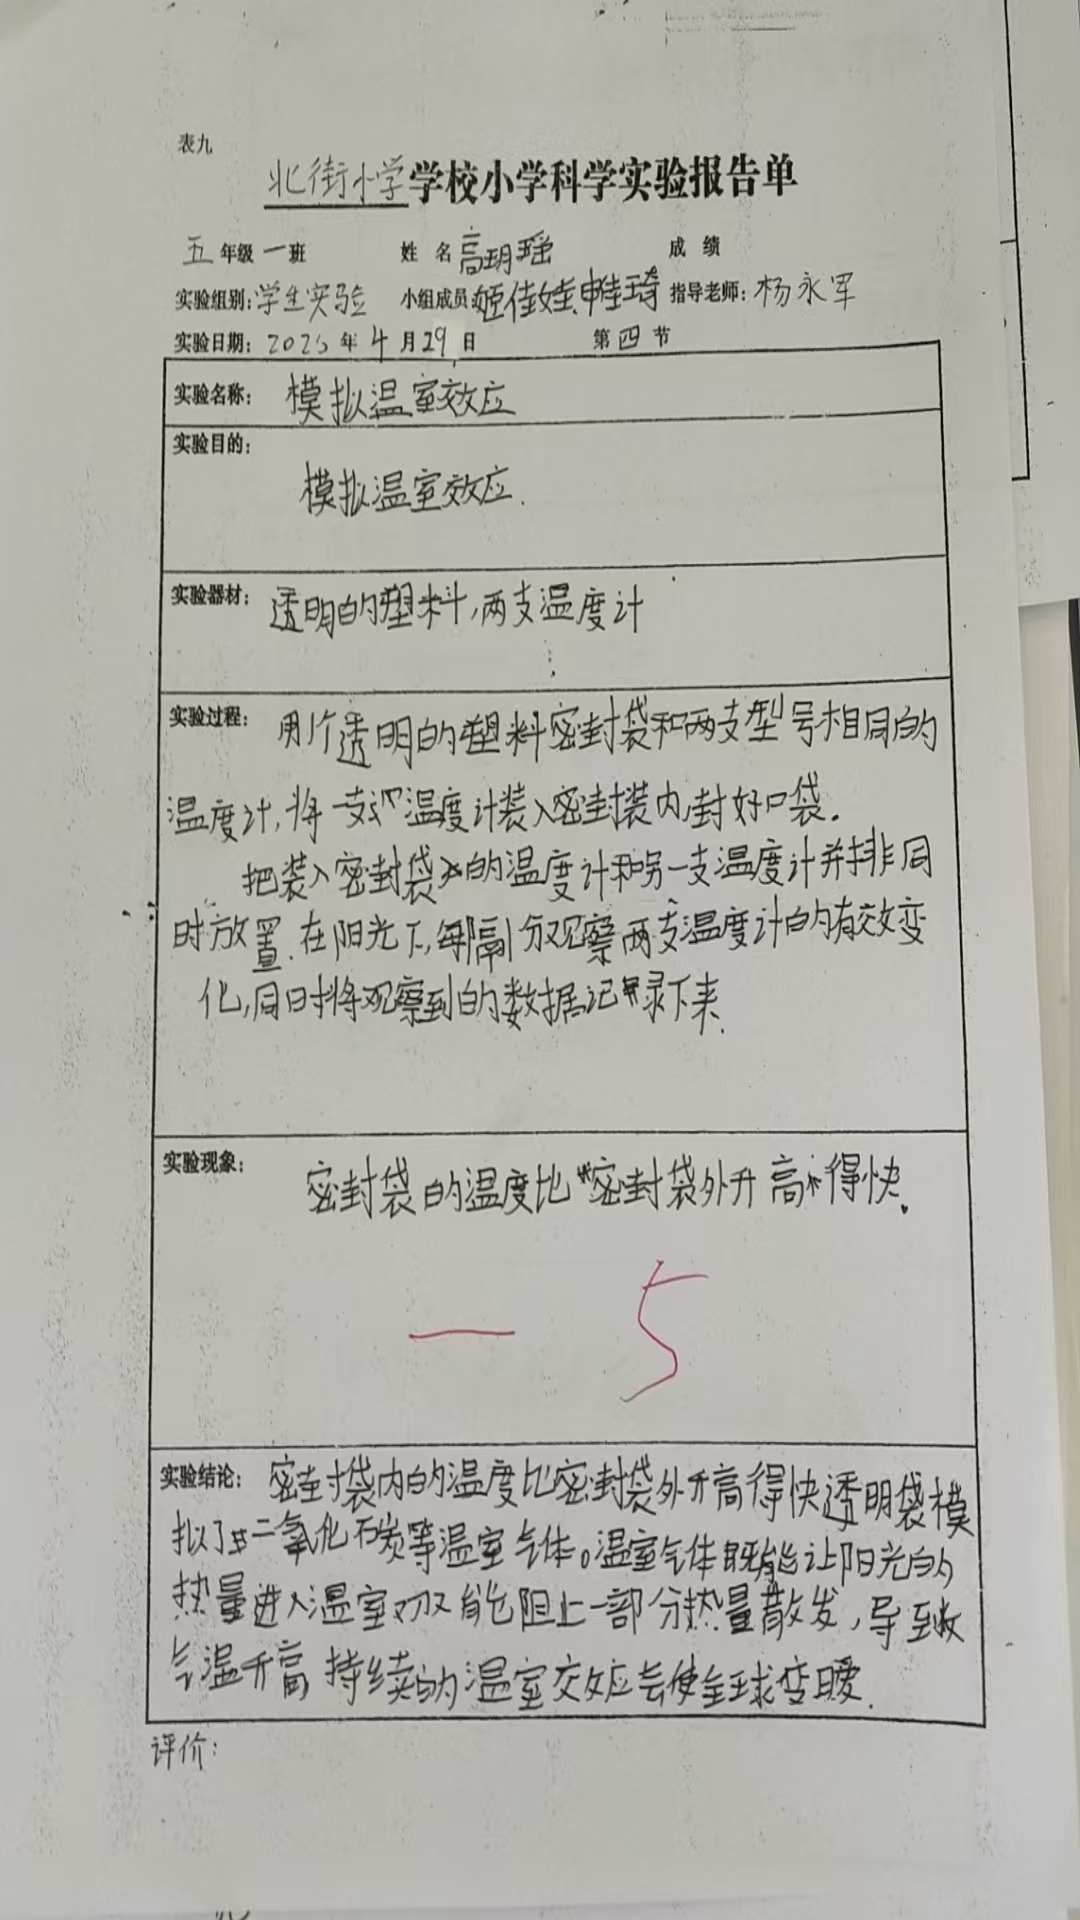 表九
北街小学学校小学科学实验报告单
五年级一班 姓名高玥瑶 成绩
实验组别:学生实验 小组成员:姬佳娃 申佳琦 指导老师:杨永军
实验日期:2025年4月29日 第四节
实验名称: 模拟温室效应
实验目的:
模拟温室效应.
实验器材: 透明的塑料,两支温度计
实验过程: 用个透明的塑料密封袋和两支型号相同的
温度计,将一支温度计装入密封装内,封好口袋.
把装入密封袋的温度计和另一支温度计并排同
时放置.在阳光下,每隔1分观察两支温度计的有效变
化,同时将观察到的数据记录下来.
实验现象: 密封袋的温度比密封袋外升高得快.
一 5
实验结论: 密封袋内的温度比密封袋外升高得快透明袋模
拟了二氧化碳等温室气体。温室气体既能让阳光的
热量进入温室又能阻止一部分热量散发,导致
气温升高 持续的温室效应会使全球变暖.
评价: